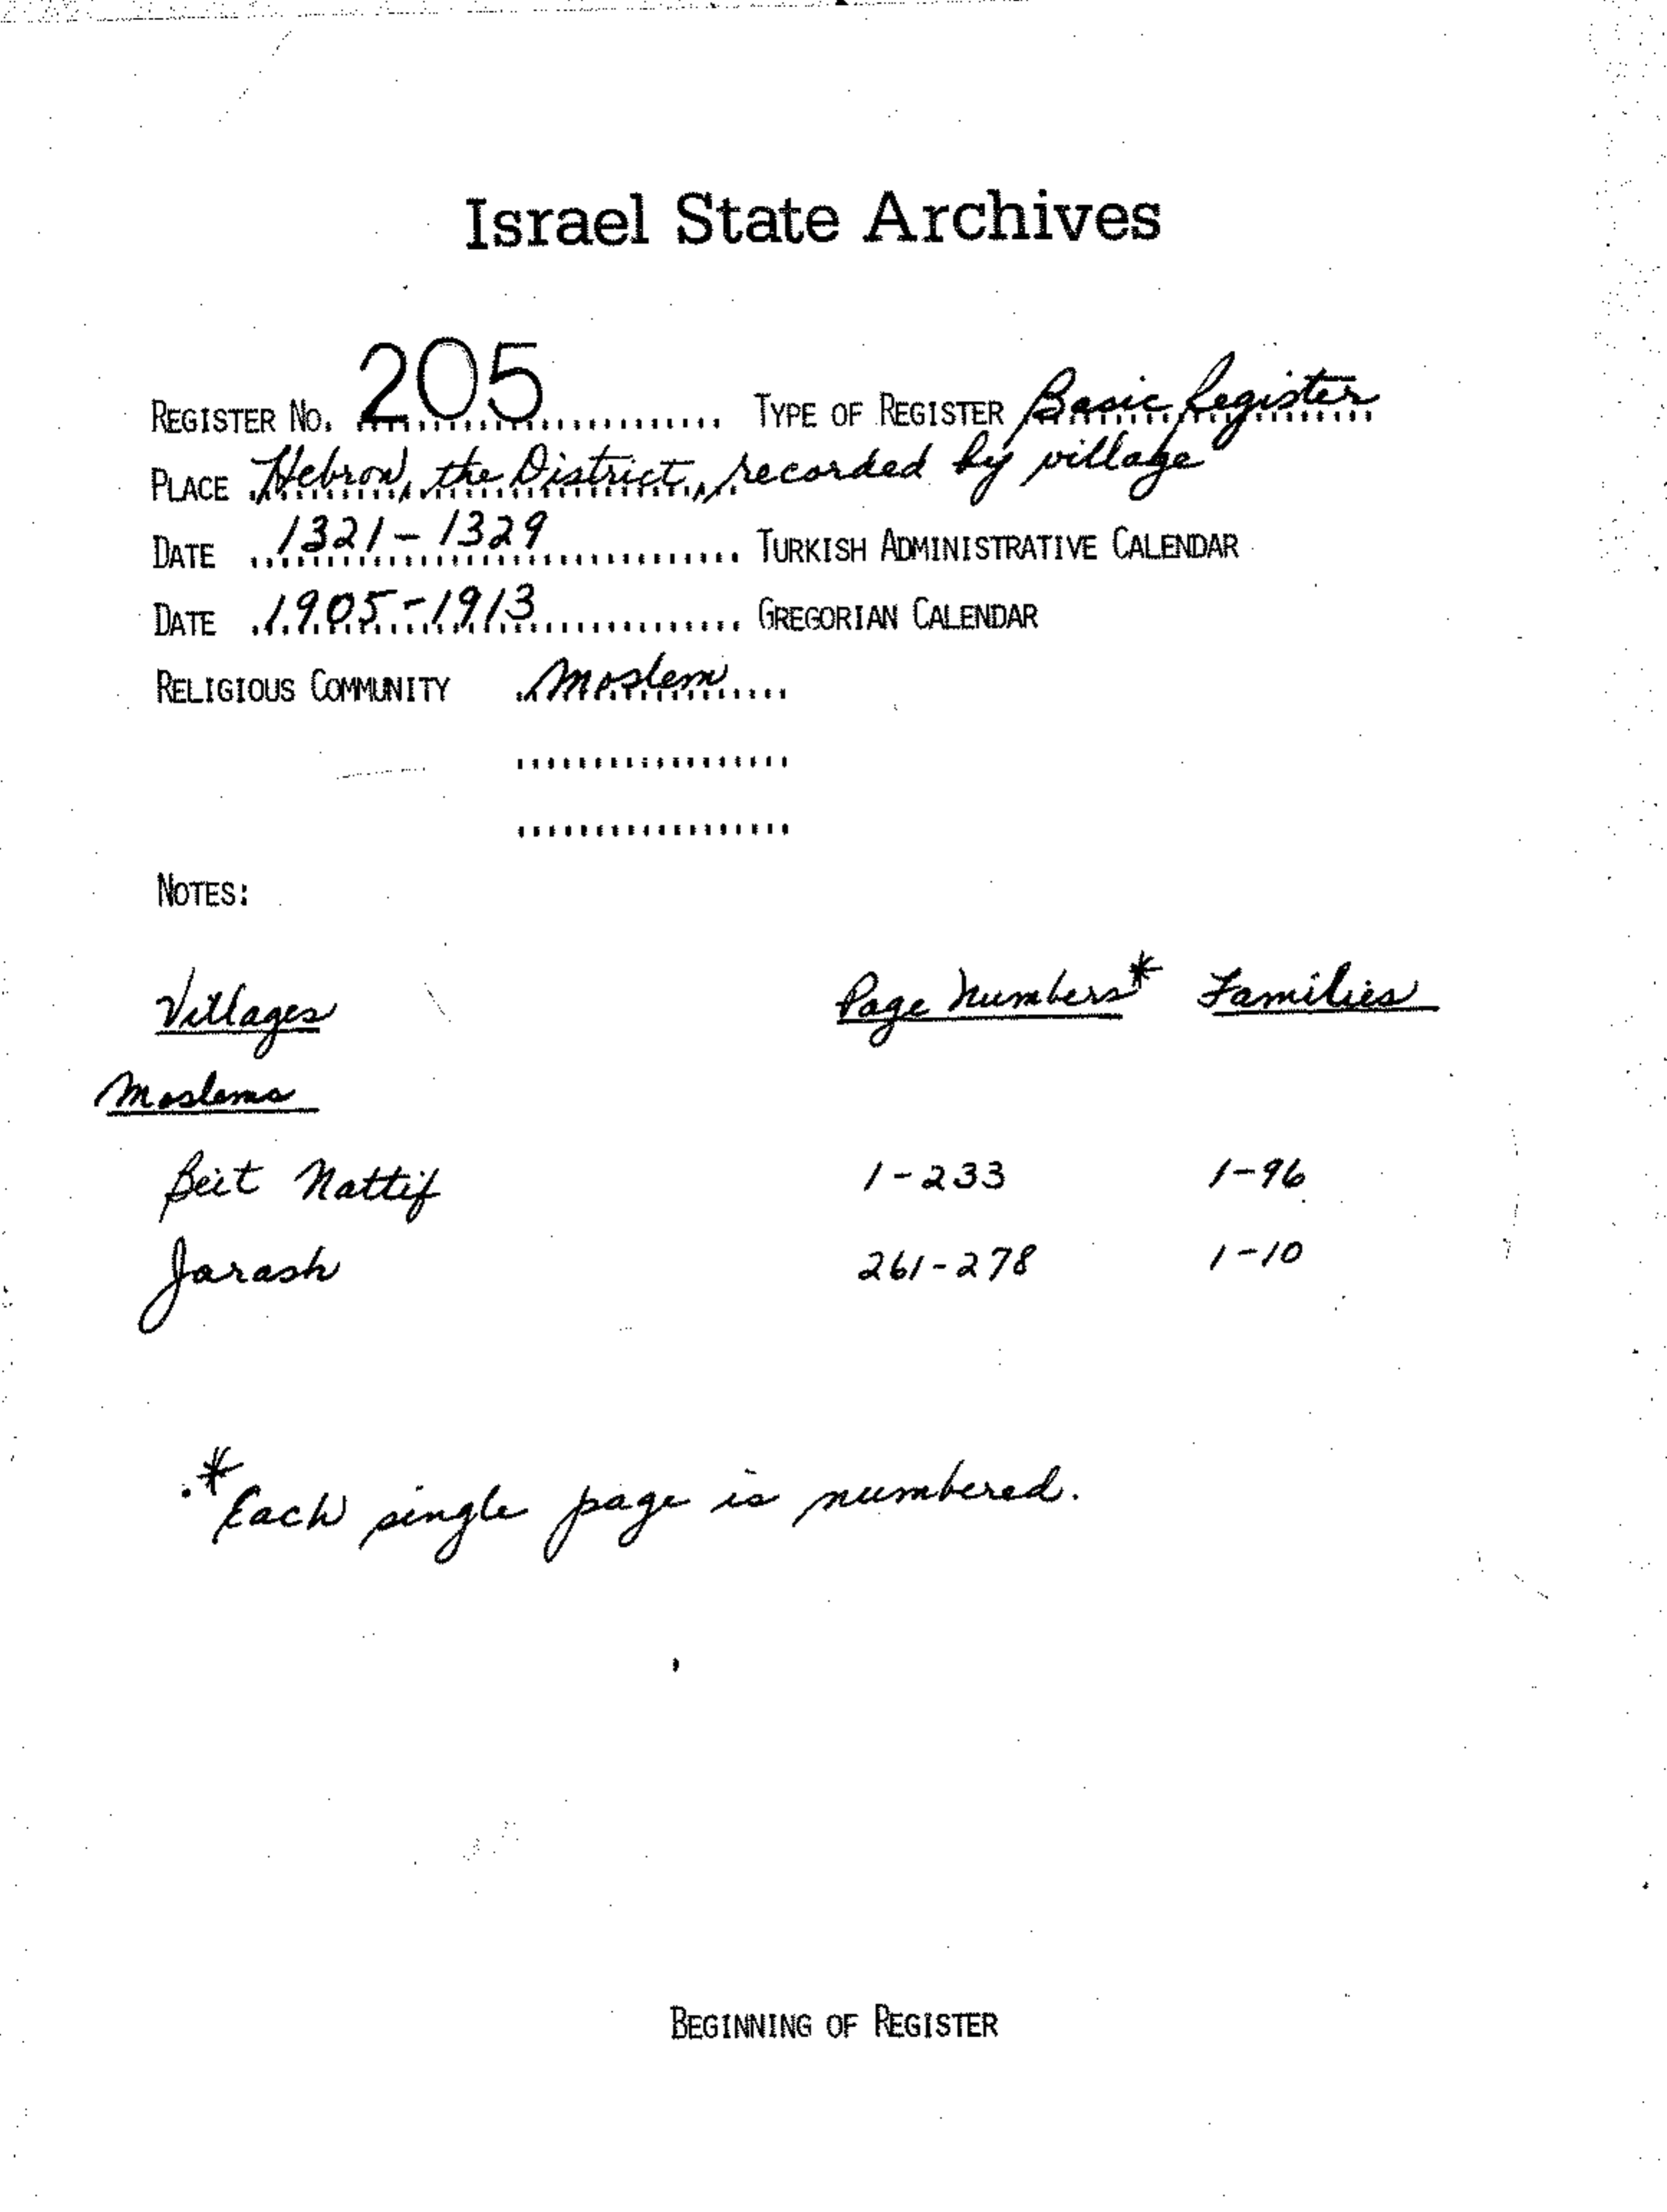 Israel State Archives
REGISTER NO. 205 TYPE OF REGISTER Basic Register
PLACE Hebron, the District, recorded by village
DATE 1321-1329 TURKISH ADMINISTRATIVE CALENDAR
DATE 1905-1913 GREGORIAN CALENDAR
RELIGIOUS COMMUNITY Moslem
NOTES:
Villages Page Numbers* Families
Moslems
Beit Nattif 1-233 1-96
Jarash 261-278 1-10
*Each single page is numbered.
BEGINNING OF REGISTER